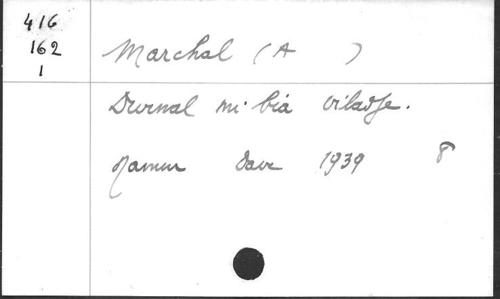 416
162
1
Marchal (A )
Durnal mi bia viladje.
Namur Dave 1939 8